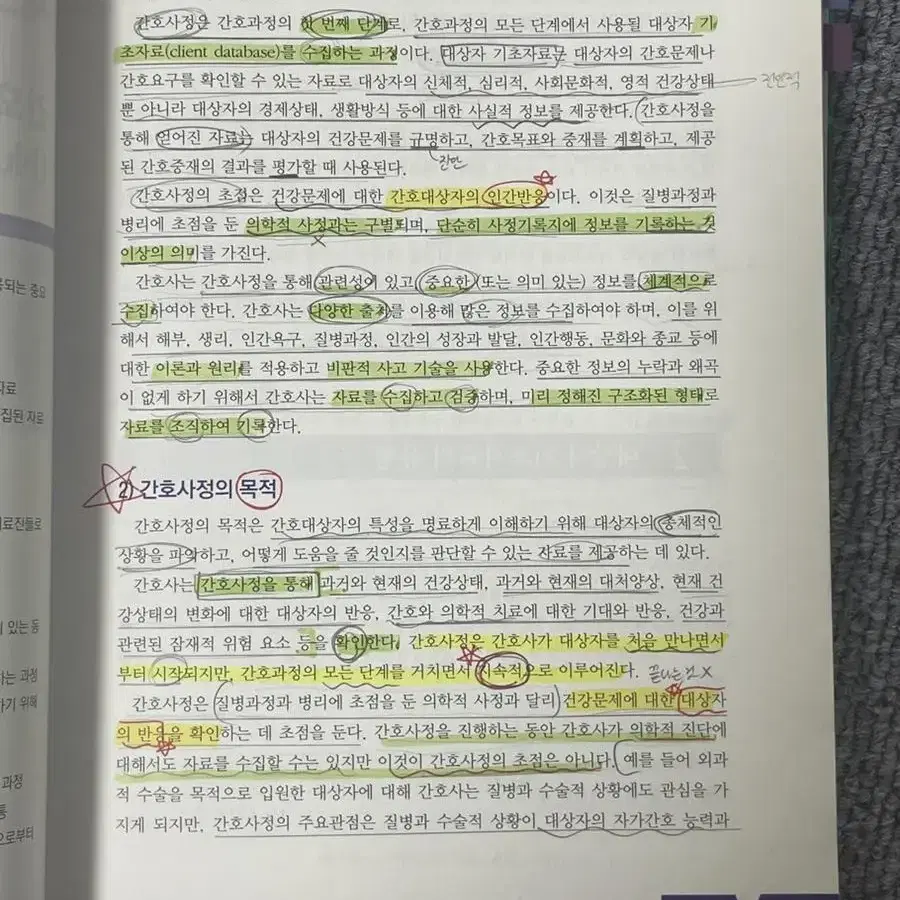 간호사정은 간호과정의 첫 번째 단계로, 간호과정의 모든 단계에서 사용될 대상자 기
초자료(client database)를 수집하는 과정이다. 대상자 기초자료는 대상자의 간호문제나
간호요구를 확인할 수 있는 자료로 대상자의 신체적, 심리적, 사회문화적, 영적 건강상태
전반적
뿐 아니라 대상자의 경제상태, 생활방식 등에 대한 사실적 정보를 제공한다. 간호사정을
통해 얻어진 자료는 대상자의 건강문제를 규명하고, 간호목표와 중재를 계획하고, 제공
진단
된 간호중재의 결과를 평가할 때 사용된다.
간호사정의 초점은 건강문제에 대한 간호대상자의 인간반응이다. 이것은 질병과정과
병리에 초점을 둔 의학적 사정과는 구별되며, 단순히 사정기록지에 정보를 기록하는 것
이상의 의미를 가진다.
간호사는 간호사정을 통해 관련성이 있고 중요한(또는 의미 있는) 정보를 체계적으로
수집하여야 한다. 간호사는 다양한 출처를 이용해 많은 정보를 수집하여야 하며, 이를 위
해서 해부, 생리, 인간욕구, 질병과정, 인간의 성장과 발달, 인간행동, 문화와 종교 등에
대한 이론과 원리를 적용하고 비판적 사고 기술을 사용한다. 중요한 정보의 누락과 왜곡
이 없게 하기 위해서 간호사는 자료를 수집하고 검증하며, 미리 정해진 구조화된 형태로
자료를 조직하여 기록한다.
2) 간호사정의 목적
간호사정의 목적은 간호대상자의 특성을 명료하게 이해하기 위해 대상자의 총체적인
상황을 파악하고, 어떻게 도움을 줄 것인지를 판단할 수 있는 자료를 제공하는 데 있다.
간호사는 간호사정을 통해 과거와 현재의 건강상태, 과거와 현재의 대처양상, 현재 건
강상태의 변화에 대한 대상자의 반응, 간호와 의학적 치료에 대한 기대와 반응, 건강과
관련된 잠재적 위험 요소 등을 확인한다. 간호사정은 간호사가 대상자를 처음 만나면서
부터 시작되지만, 간호과정의 모든 단계를 거치면서 지속적으로 이루어진다.
간호사정은 질병과정과 병리에 초점을 둔 의학적 사정과 달리 건강문제에 대한 대상자
의 반응을 확인하는 데 초점을 둔다. 간호사정을 진행하는 동안 간호사가 의학적 진단에
대해서도 자료를 수집할 수는 있지만 이것이 간호사정의 초점은 아니다. 예를 들어 외과
적 수술을 목적으로 입원한 대상자에 대해 간호사는 질병과 수술적 상황에도 관심을 가
지게 되지만, 간호사정의 주요관점은 질병과 수술적 상황이 대상자의 자가간호 능력과
되는 중요
자료
집된 자료
의료진들로
있는 동
하는 과정
하기 위해
과정
통
으로부터